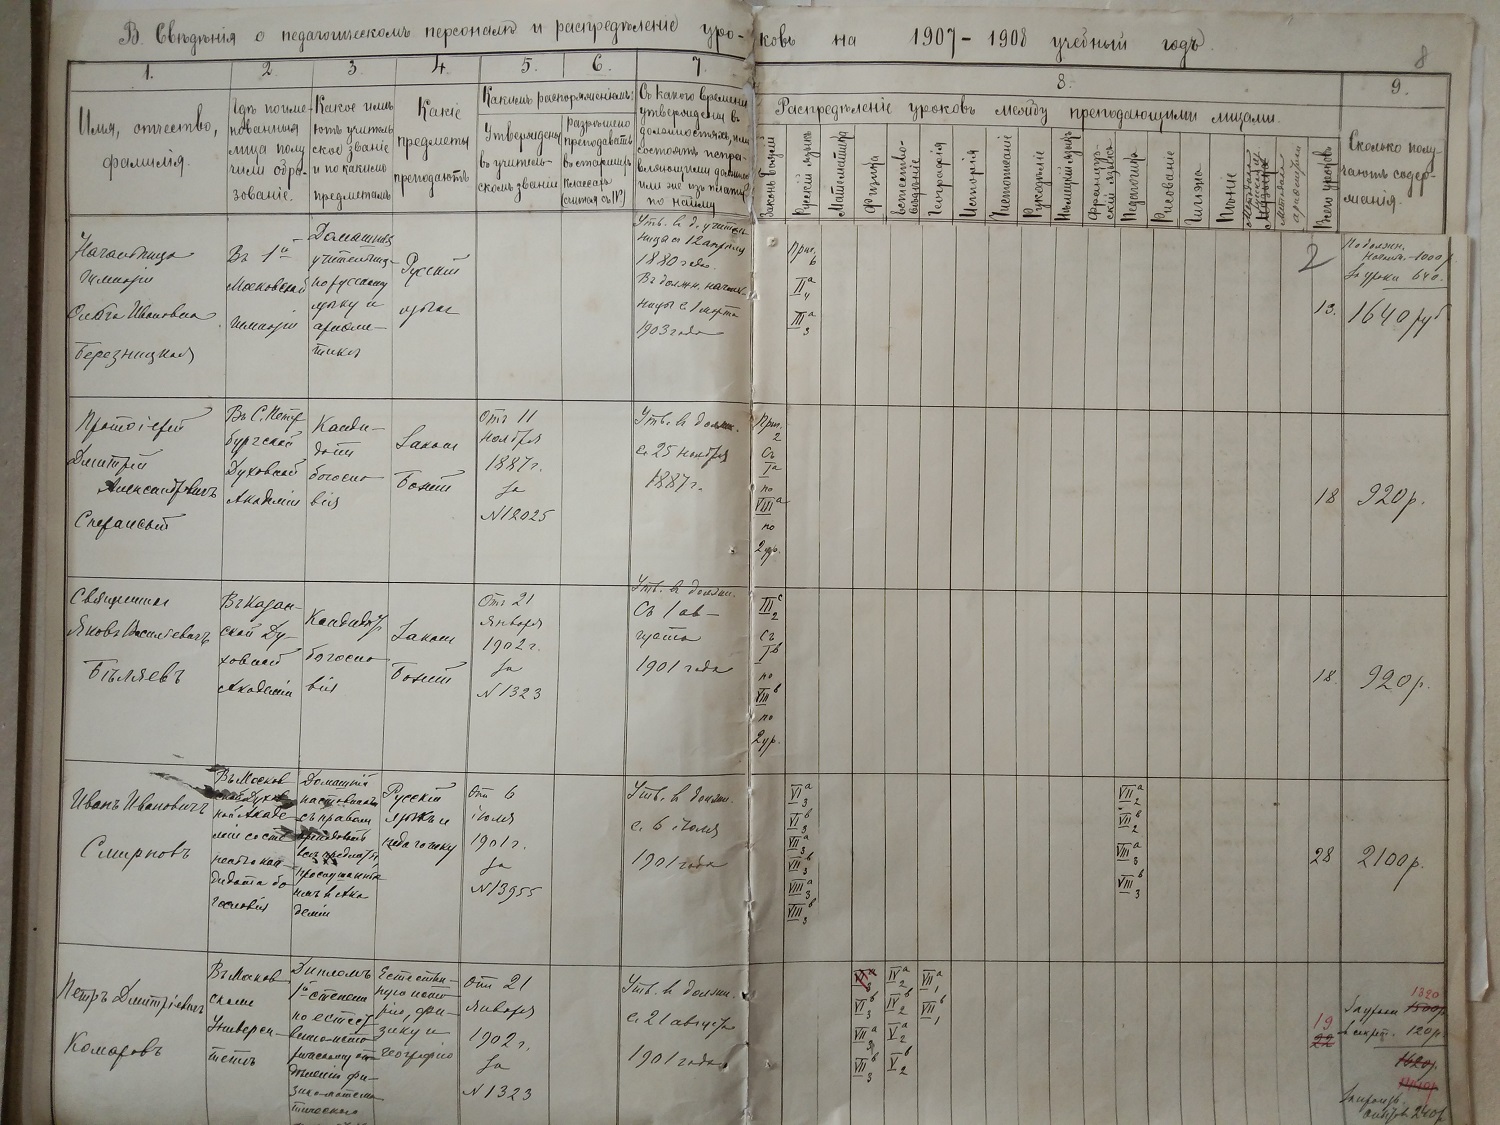 В. Свѣдѣнія о педагогическомъ персоналѣ и распредѣленіе уро-ковъ на 1907-1908 учебный годъ.
8
1. 2. 3. 4. 5. 6. 7. 8. 9.
Имя, отчество,
фамилія.
Гдѣ поиме-
нованныя
лица полу
чили обра-
зованіе.
Какое имѣ
ютъ учитель
ское званіе
и по какимъ
предметамъ
Какіе
предметы
преподаютъ
Какимъ распоряженіемъ:
Утверждены
въ учитель-
скомъ званіи
разрѣшено
преподавать
въ старшихъ
классахъ
(считая съ IV)
Съ какого времени
утверждены въ
должностяхъ, или
состоятъ испра-
вляющими должност
или же изъ платы
по найму
Распредѣленіе уроковъ между преподающими лицами.
Законъ Божій
Русскій языкъ
Математика
Физика
Естество-
вѣдѣніе
Географія
Исторія
Чистописаніе
Рукодѣліе
Нѣмецкій языкъ
Француз-
скій языкъ
Педагогика
Рисованіе
Гигіена
Пѣніе
Методика
ариѳметики
Всего уроковъ
Сколько полу-
чаютъ содер-
жанія.
Начальница
гимназіи
Ольга Ивановна
Березницкая
Въ 1ой
Московской
гимназіи
Домашняя
учительниц-
по русскому
языку и
ариѳме-
тикѣ
Русскій
языкъ
Утв. въ д. учитель
ницы 12 апрѣля
1880 года.
Въ должн. началь
ницы съ 1 марта
1903 года
Приг.
6
II а 4
III а 3
2
13.
По должн.
Началь. - 1000 р.
За уроки 640.
1640 руб
Протоіерей
Дмитрій
Александровичъ
Сперанскій
Въ С. Петер
бургской
Духовной
Академіи
Канди-
датъ
богосло
вія
Законъ
Божій
Отъ 11
ноября
1887 г.
за
№ 12025
Утв. въ должн.
съ 25 ноября
1887 г.
Приг.
2
Съ
I а
по
VIII а
по
2 ур.
18
920 р.
Священникъ
Яковъ Васильевичъ
Бѣляевъ
Въ Казан-
ской Ду-
ховной
Академіи
Кандидатъ
богосло
вія
Законъ
Божій
Отъ 21
Января
1902 г.
за
№ 1323
Утв. въ должн.
Съ 1 ав-
густа
1901 года
III с 2
Съ
I в
по
VIII в
по
2 ур.
18.
920 р.
Иванъ Ивановичъ
Смирновъ
Въ Москов
ской Духов
ной Акаде-
міи со ст
пенью кан-
дидата бо
гословія
Домашній
наставникъ
съ правомъ
преподавать
прослушаннымъ
имъ въ Ака
деміи
Русскій
языкъ и
педагогику
Отъ 6
іюля
1901 г.
за
№ 13955
Утв. въ должн.
съ 6 іюля
1901 года
VI а 3
VI в 3
VII а 3
VII в 3
VIII а 3
VIII в 3
VII а 2
VII в 2
VIII а 3
VIII в 3
28
2100 р.
Петръ Дмитріевичъ
Комаровъ
Въ Москов
скомъ
Универси-
тетѣ
Дипломъ
1ой степени
по естест
отдѣленію фи-
зико-матема-
тическаго
Естествен-
ную исто
рію, фи-
зику и
географію
Отъ 21
Января
1902 г.
за
№ 1323
Утв. въ должн.
съ 21 августа
1901 года
VI а 3
VI в 3
VII а
VII в 3
IV а 2
IV в 2
V а 2
V в 2
VII а 1
VII в 1
19
22
1320
За уроки 1500 р.
секрет. 120 р.
1620 р.
240 р.